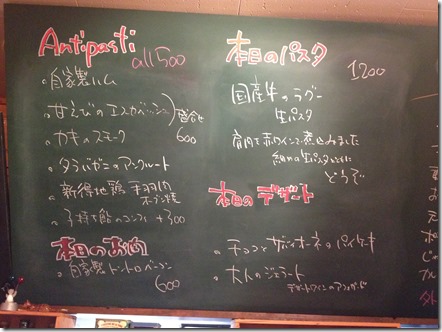 Antipasti all500
。自家製ハム
。甘えびのエスカベッシュ
盛合せ
。カキのスモーク
600
。タラバガニのアンクルート
。新得地鶏 手羽肉
オーブン焼
。子持ち鮎のコンフィ +300
本日のお肉
。自家製
600
本日のパスタ
1200
国産牛のラグー
生パスタ
肩肉を赤ワインで煮込みました
細めの生パスタと共に
どうぞ
本日のデザート
。チョコとザバイオーネのパイケーキ
。大人のジェラート
デザートワインのアフォガード